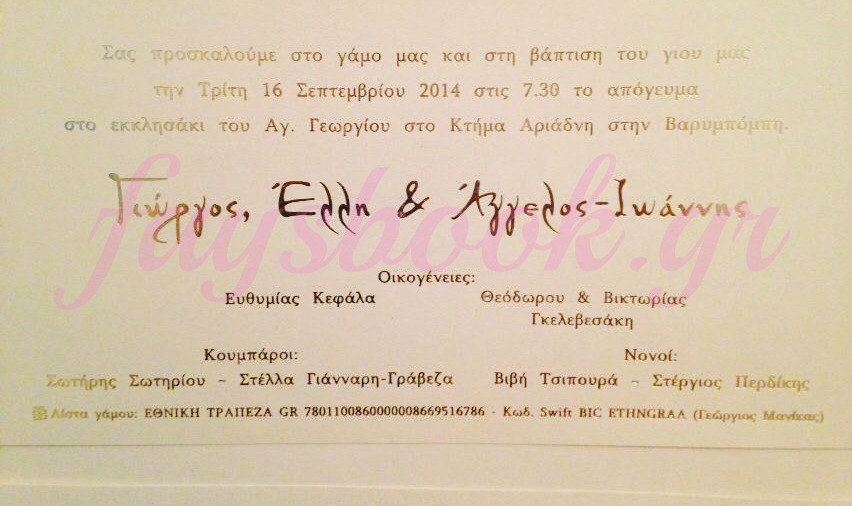 Σας προσκαλούμε στο γάμο μας και στη βάπτιση του γιου μας
την Τρίτη 16 Σεπτεμβρίου 2014 στις 7.30 το απόγευμα
στο εκκλησάκι του Αγ. Γεωργίου στο Κτήμα Αριάδνη στην Βαρυμπόμπη.
Γιώργος, Έλλη & Άγγελος-Ιωάννης
faysbook.gr
Οικογένειες:
Ευθυμίας Κεφάλα Θεόδωρου & Βικτωρίας
Γκελεβεσάκη
Κουμπάροι: Νονοί:
Σωτήρης Σωτηρίου ~ Στέλλα Γιάνναρη-Γράβεζα Βιβή Τσιπουρά ~ Στέργιος Περδίκης
Λίστα γάμου: ΕΘΝΙΚΗ ΤΡΑΠΕΖΑ GR 7801100860000008669516786 - Κωδ. Swift BIC ETHNGRAA (Γεώργιος Μανίκας)